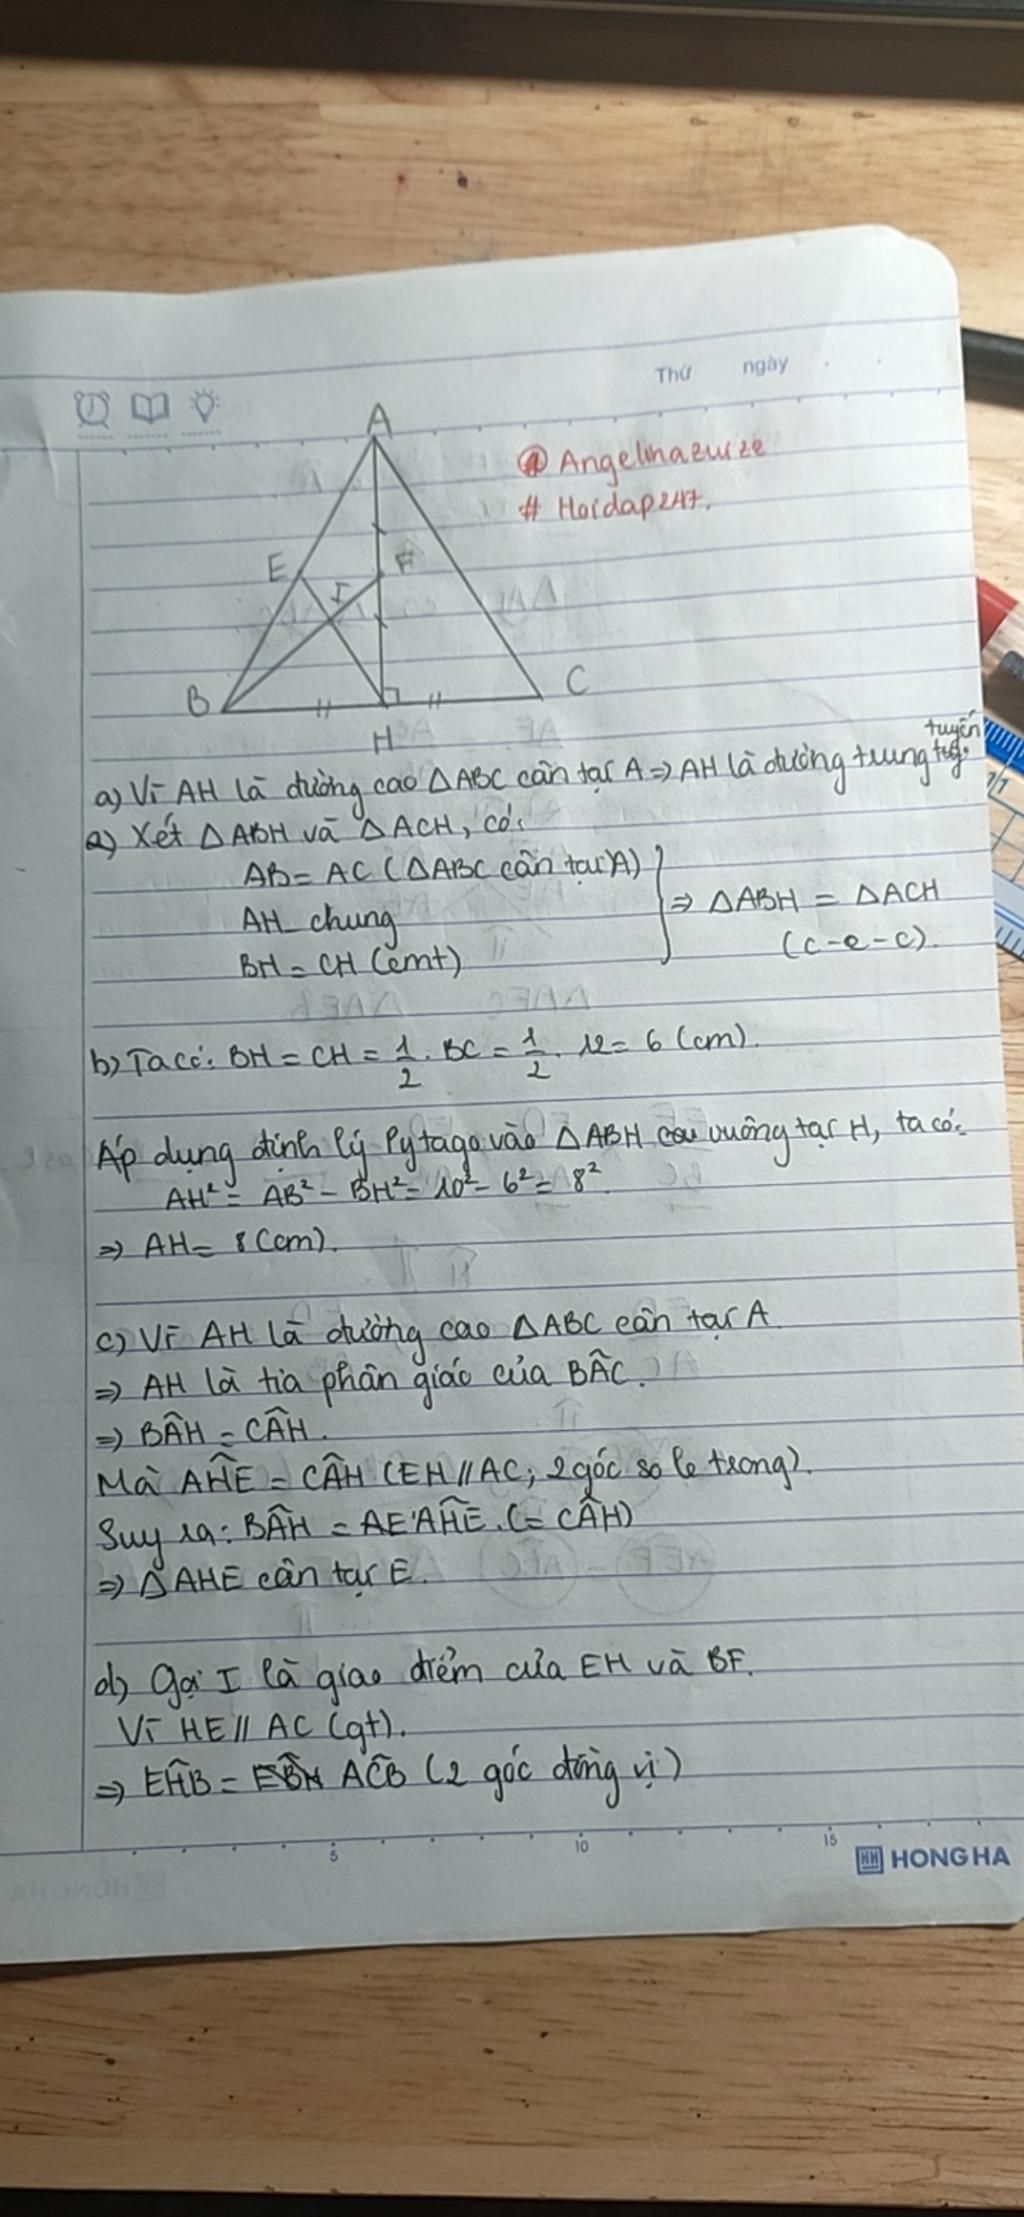 Thứ ngày
A
@ Angelinazuize
# Hoidap247.
E
F
I
B
C
H
tuyến
a) Vì AH là đường cao ΔABC cân tại A => AH là đường trung
a) Xét ΔABH và ΔACH, có:
AB = AC (ΔABC cân tại A)
AH chung
=> ΔABH = ΔACH
BH = CH (cmt)
(c-c-c).
b) Ta có: BH = CH = 1/2 . BC = 1/2 . 12 = 6 (cm).
Áp dụng định lý Pytago vào ΔABH vuông tại H, ta có:
AH² = AB² - BH² = 10² - 6² = 8²
=> AH = 8 (cm).
c) Vì AH là đường cao ΔABC cân tại A
=> AH là tia phân giác của BÂC.
=> BÂH = CÂH.
Mà AĤE = CÂH (EH // AC; 2 góc so le trong).
Suy ra: BÂH = AE'AĤE. (= CÂH)
=> ΔAHE cân tại E.
d) Gọi I là giao điểm của EH và BF.
Vì HE // AC (gt).
=> EĤB = AĈB (2 góc đồng vị)
5 10 15
HH HONG HA